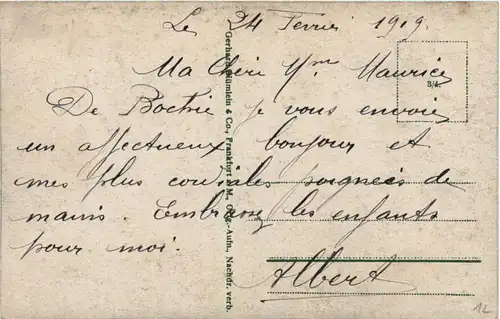 Le 24 Fevrier 1919.
Ma Chère Mme Maurice
De Bochie je vous envoie
un affectueux bonjour et
mes plus cordiales poignées de
mains. Embrassez les enfants
pour moi.
Albert
Gerhard Blümlein & Co., Frankfurt a. M., Orig.-Aufn., Nachdr. verb.
12